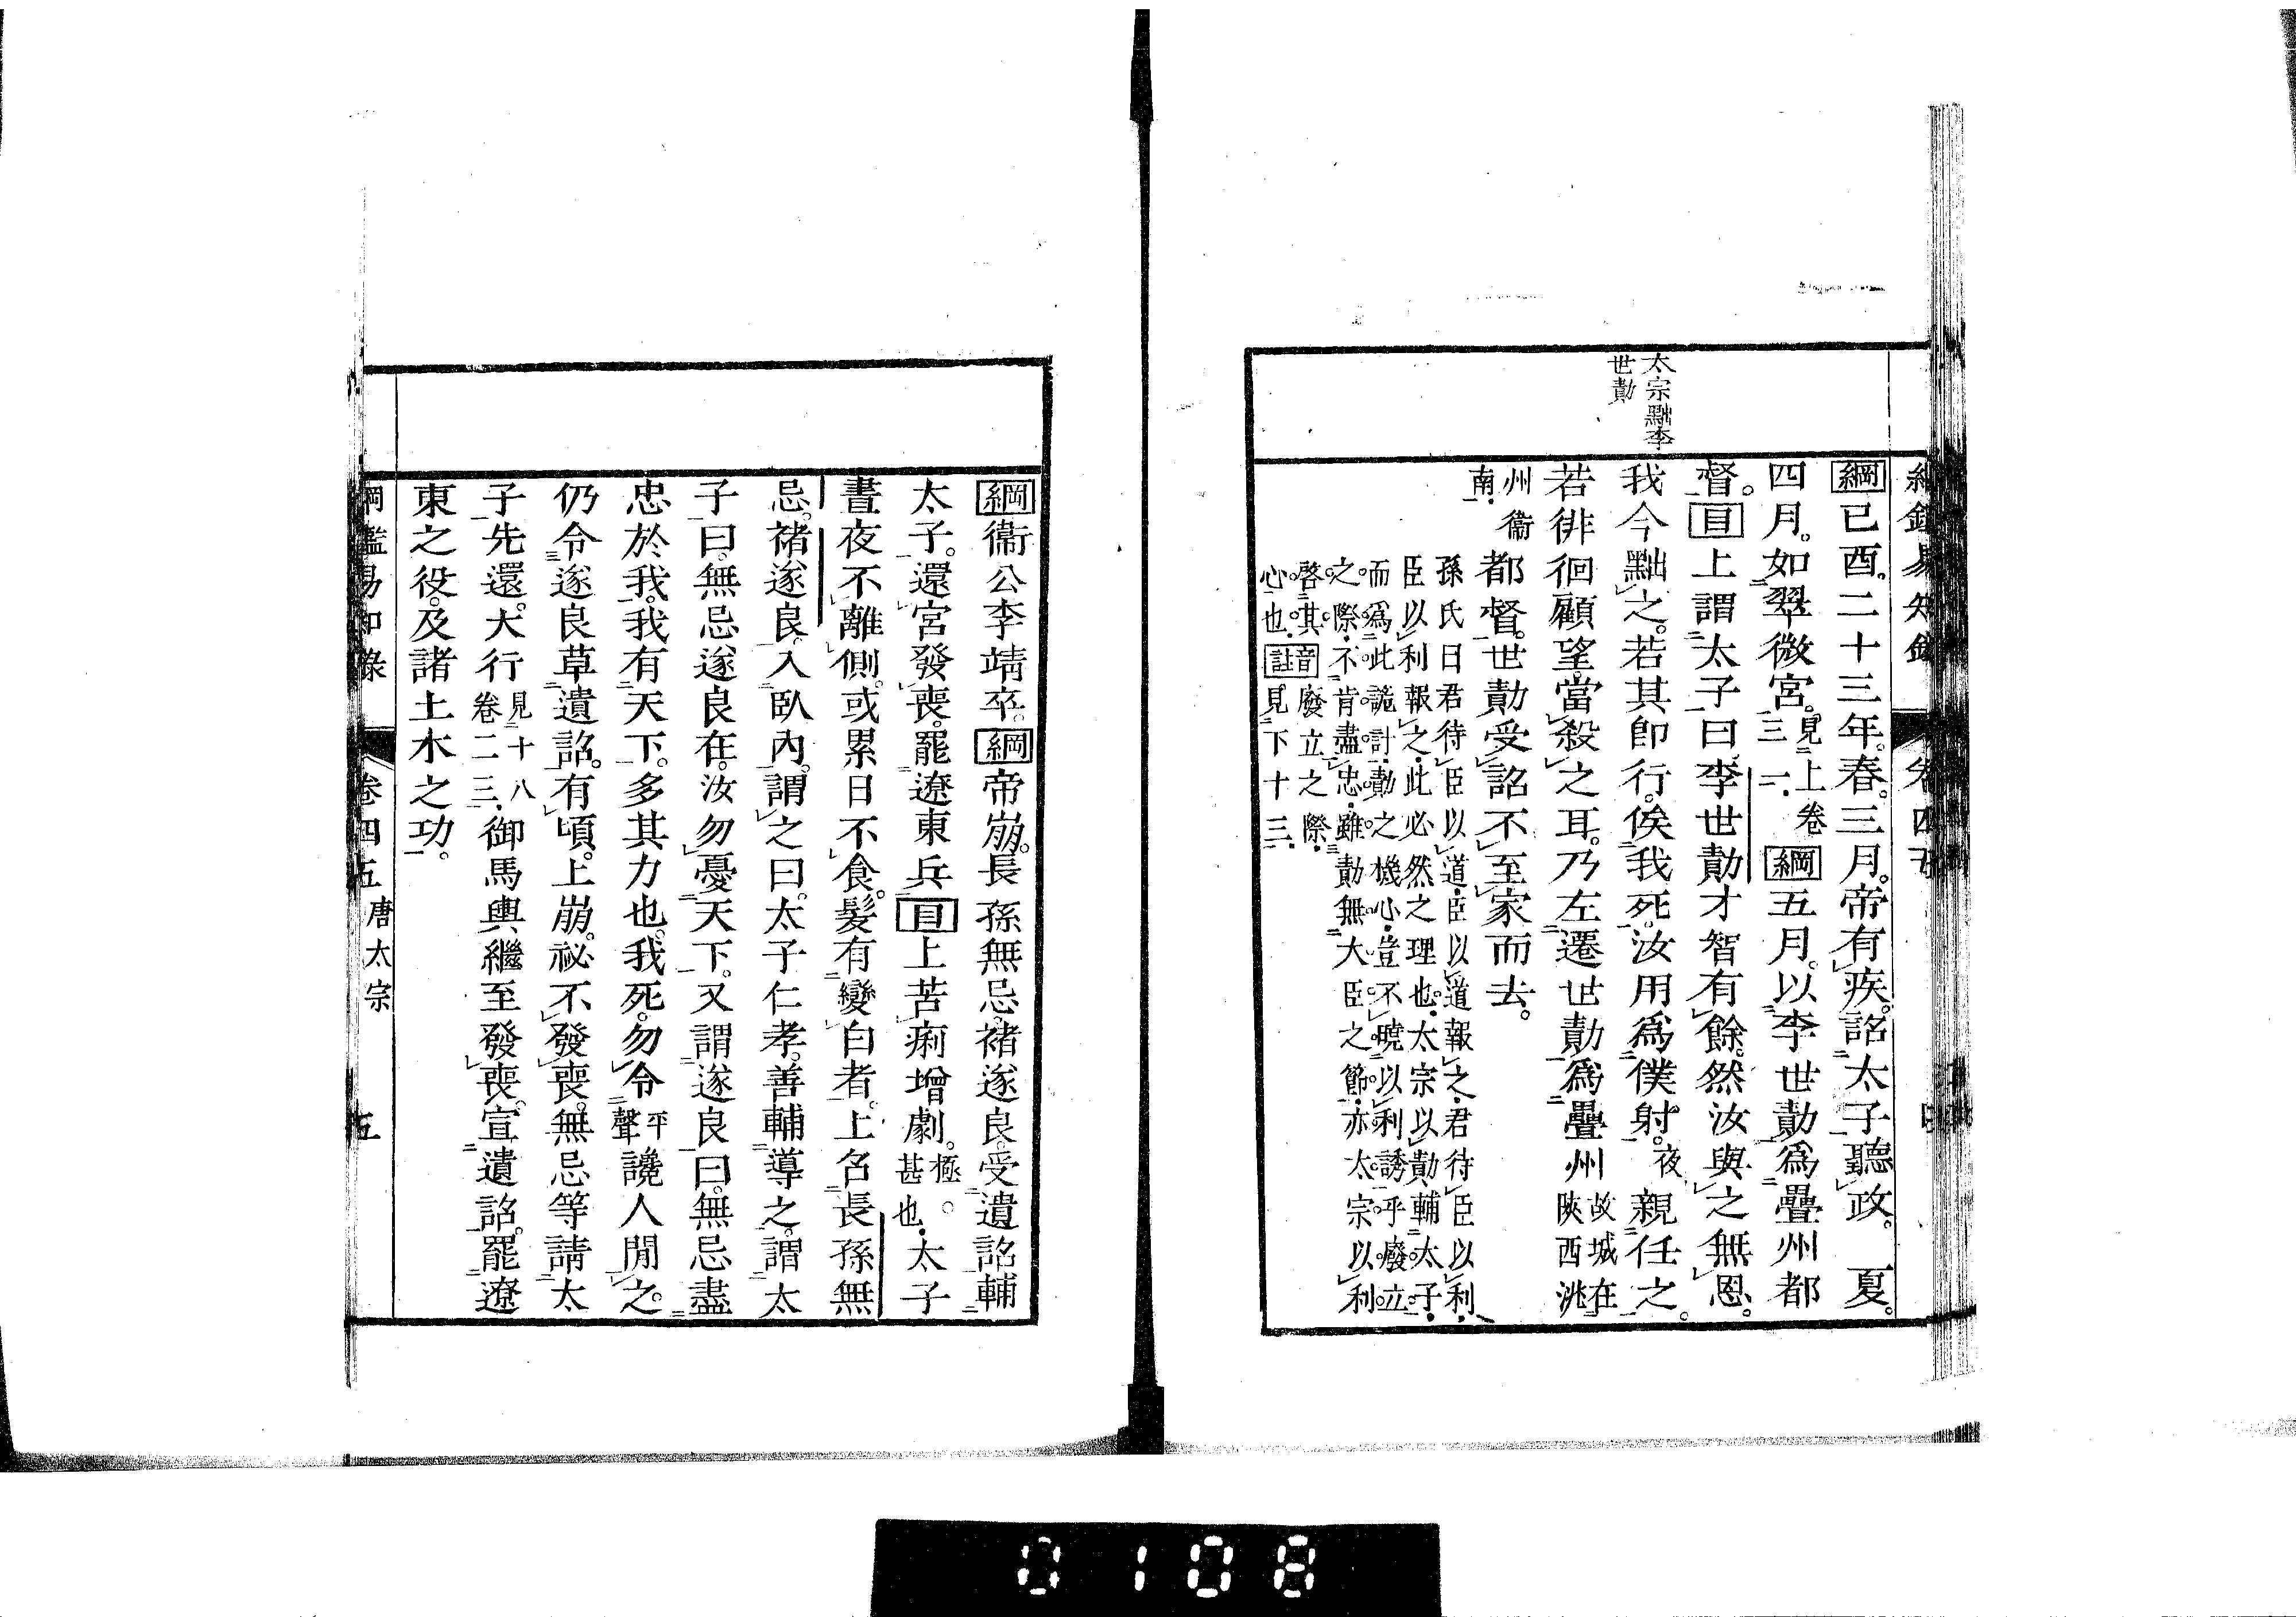 太宗黜李
世勣
綱已酉。二十三年。春。三月。帝有疾。詔太子聽政。 夏。
四月。如翠微宮。見上卷三一。綱五月。以李世勣爲疊州都
督。目上謂太子曰。李世勣才智有餘。然汝與之無恩。
我今黜之。若其卽行。俟我死。汝用爲僕射。夜親任之。
若徘徊顧望。當殺之耳。乃左遷世勣爲疊州故城在陝西洮
州衞南。都督。世勣受詔不至家而去。
孫氏曰君待臣以道。臣以道報之。君待臣以利。
臣以利報之。此必然之理也。太宗以勣輔太子。
而爲此詭計。勣之機心。豈不曉以利誘乎。廢立
之際。不肯盡忠。雖勣無大臣之節。亦太宗以利
啓其
心也。音廢立之際。
註見下十三。
綱衞公李靖卒。綱帝崩。長孫無忌。褚遂良。受遺詔輔
太子。還宮發喪。罷遼東兵目上苦痢增劇。極。甚也。太子
晝夜不離側。或累日不食。髮有變白者。上召長孫無
忌。褚遂良。入臥內。謂之曰。太子仁孝。善輔導之。謂太
子曰。無忌遂良在。汝勿憂天下。又謂遂良曰。無忌盡
忠於我。我有天下。多其力也。我死。勿令平聲讒人間之。
仍令遂良草遺詔。有頃。上崩。祕不發喪。無忌等請太
子先還。大行見十八卷二三。御馬輿繼至發喪。宣遺詔。罷遼
東之役。及諸土木之功。
綱鑑易知錄 卷四五 唐太宗 五
0108